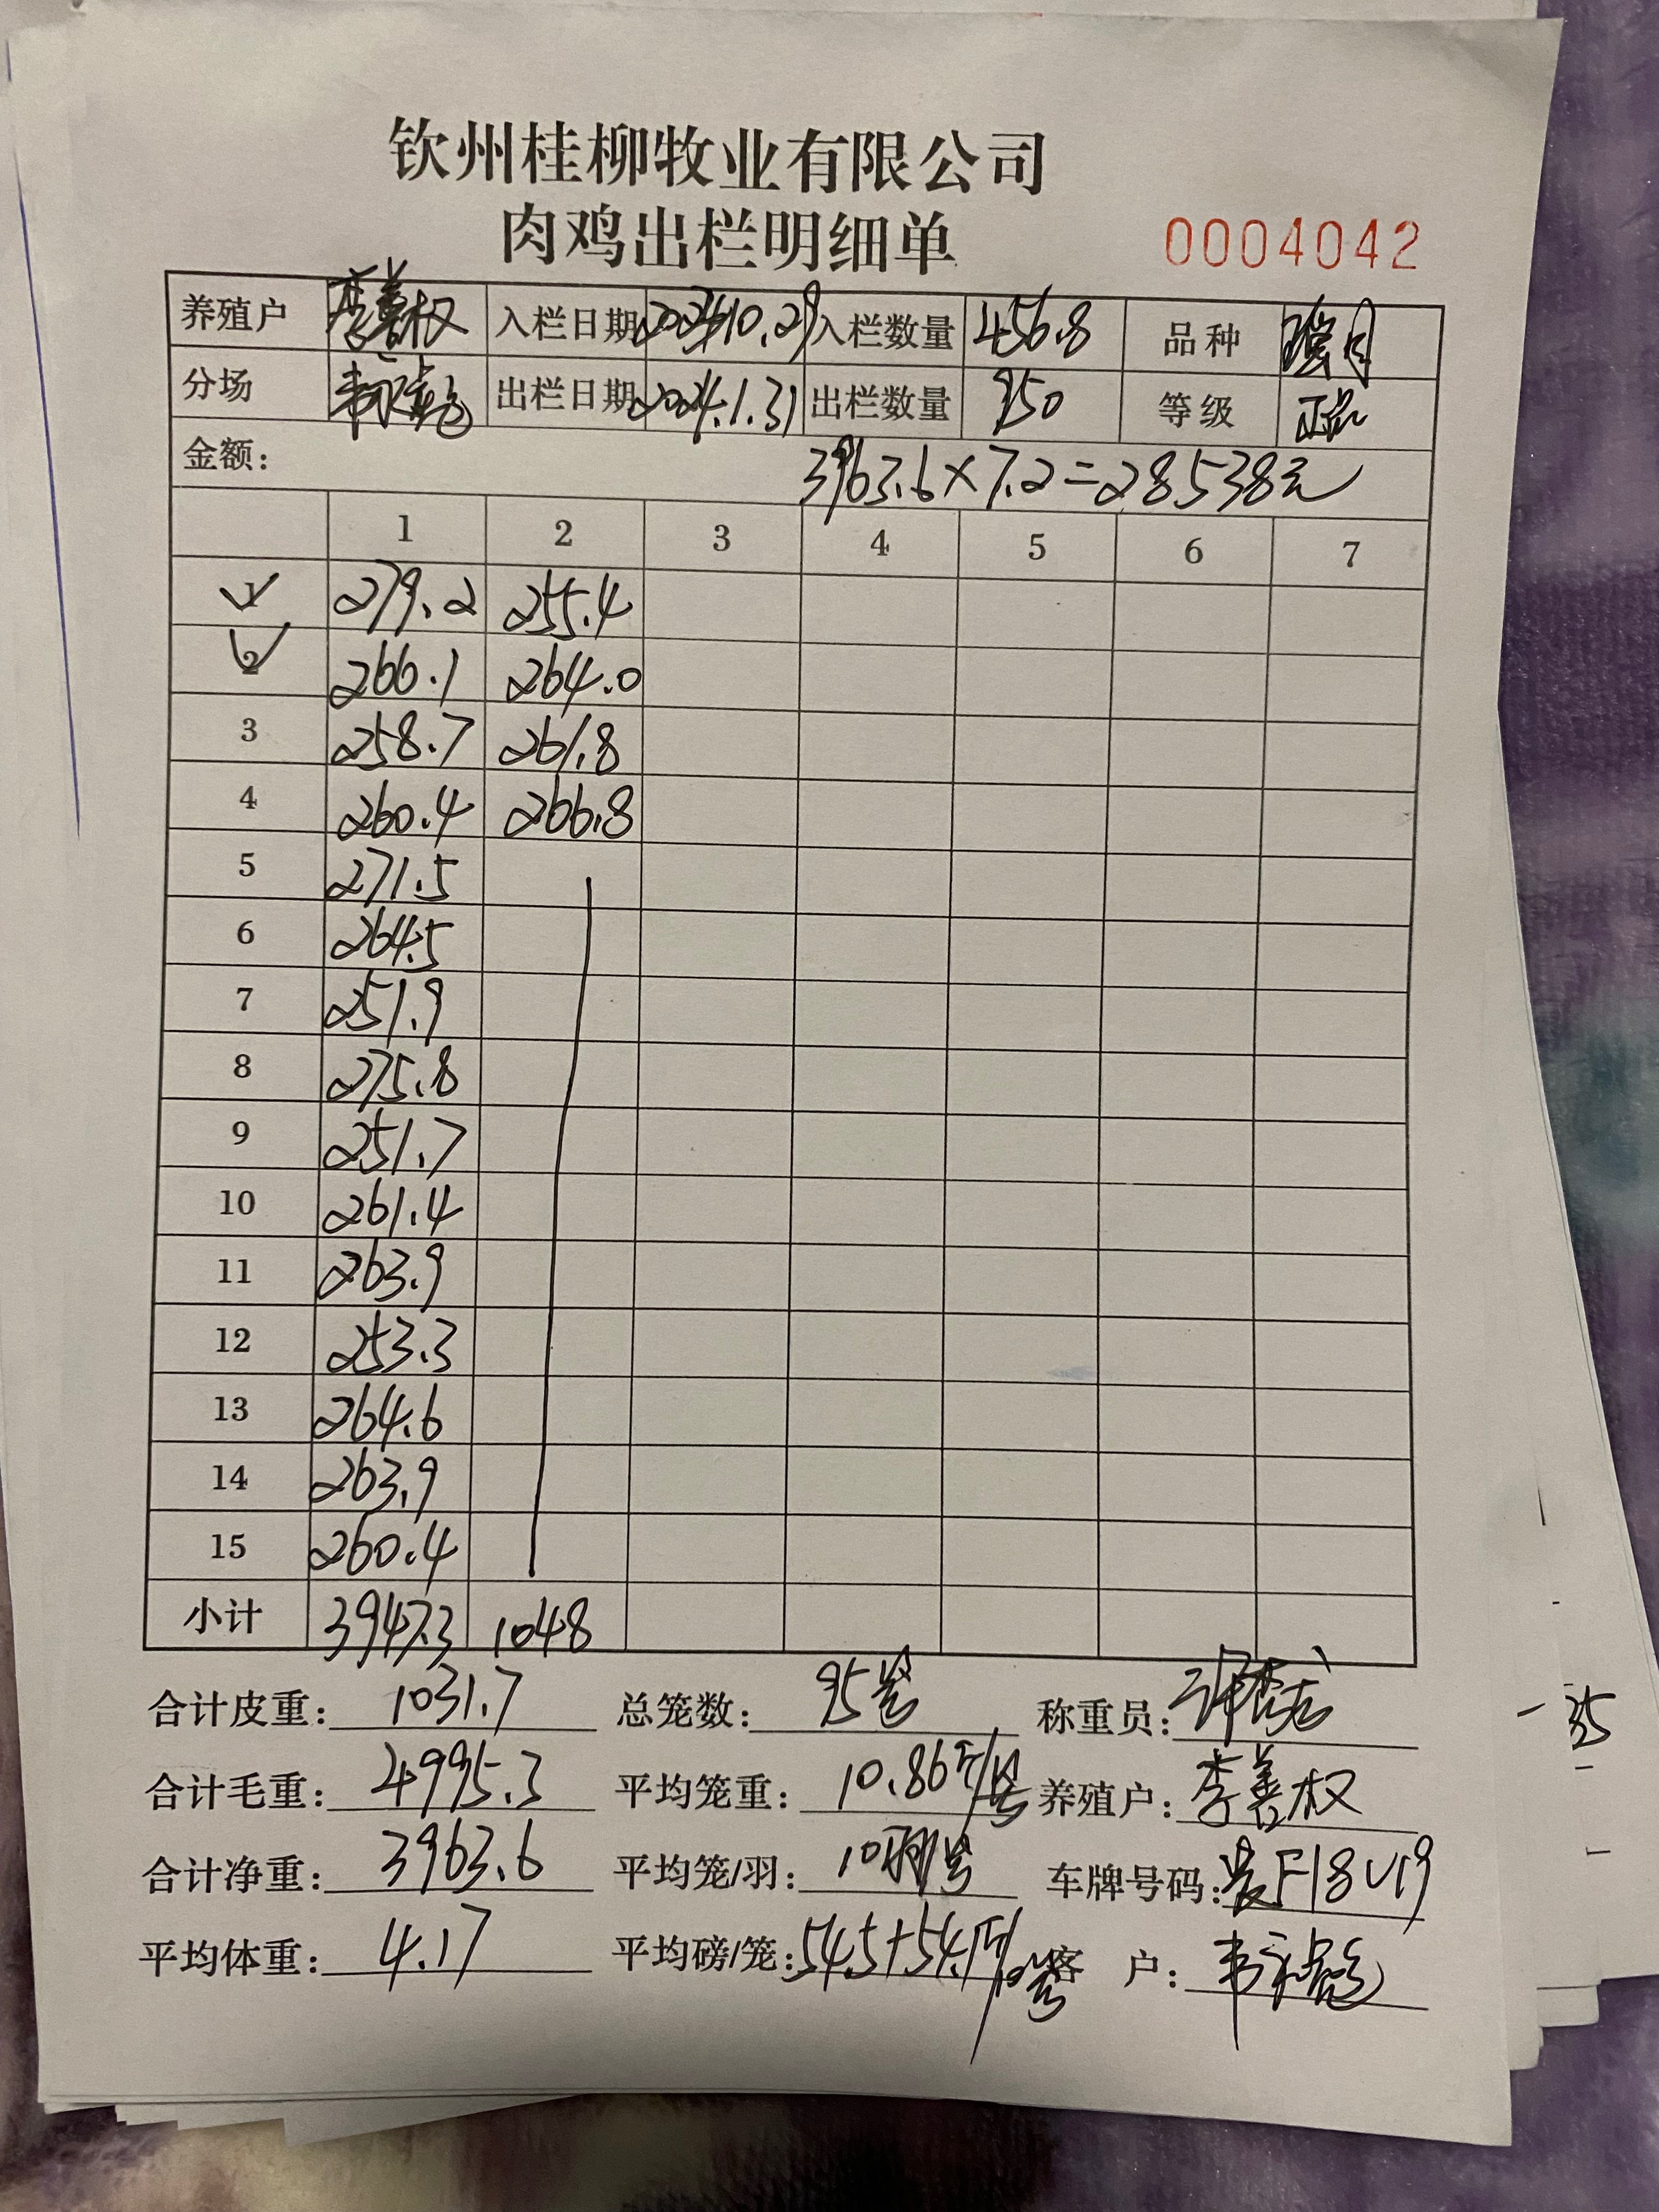 钦州桂柳牧业有限公司
肉鸡出栏明细单 0004042
养殖户 李善权 入栏日期 10.29 入栏数量 456.8 品种
分场 出栏日期 2024.1.31 出栏数量 950 等级
金额: 3963.6×7.2=28538元
1 2 3 4 5 6 7
1 279.2 255.4
2 266.1 264.0
3 258.7 261.8
4 260.4 266.8
5 271.5
6 264.5
7 251.9
8 275.8
9 251.7
10 261.4
11 263.9
12 253.3
13 264.6
14 263.9
15 260.4
小计 3947.3 1048
合计皮重: 1031.7 总笼数: 95笼 称重员:
合计毛重: 4995.3 平均笼重: 10.86斤/笼 养殖户: 李善权
合计净重: 3963.6 平均笼/羽: 10羽/笼 车牌号码: F18U19
平均体重: 4.17 平均磅/笼: 54.5+54.1 客 户:
35